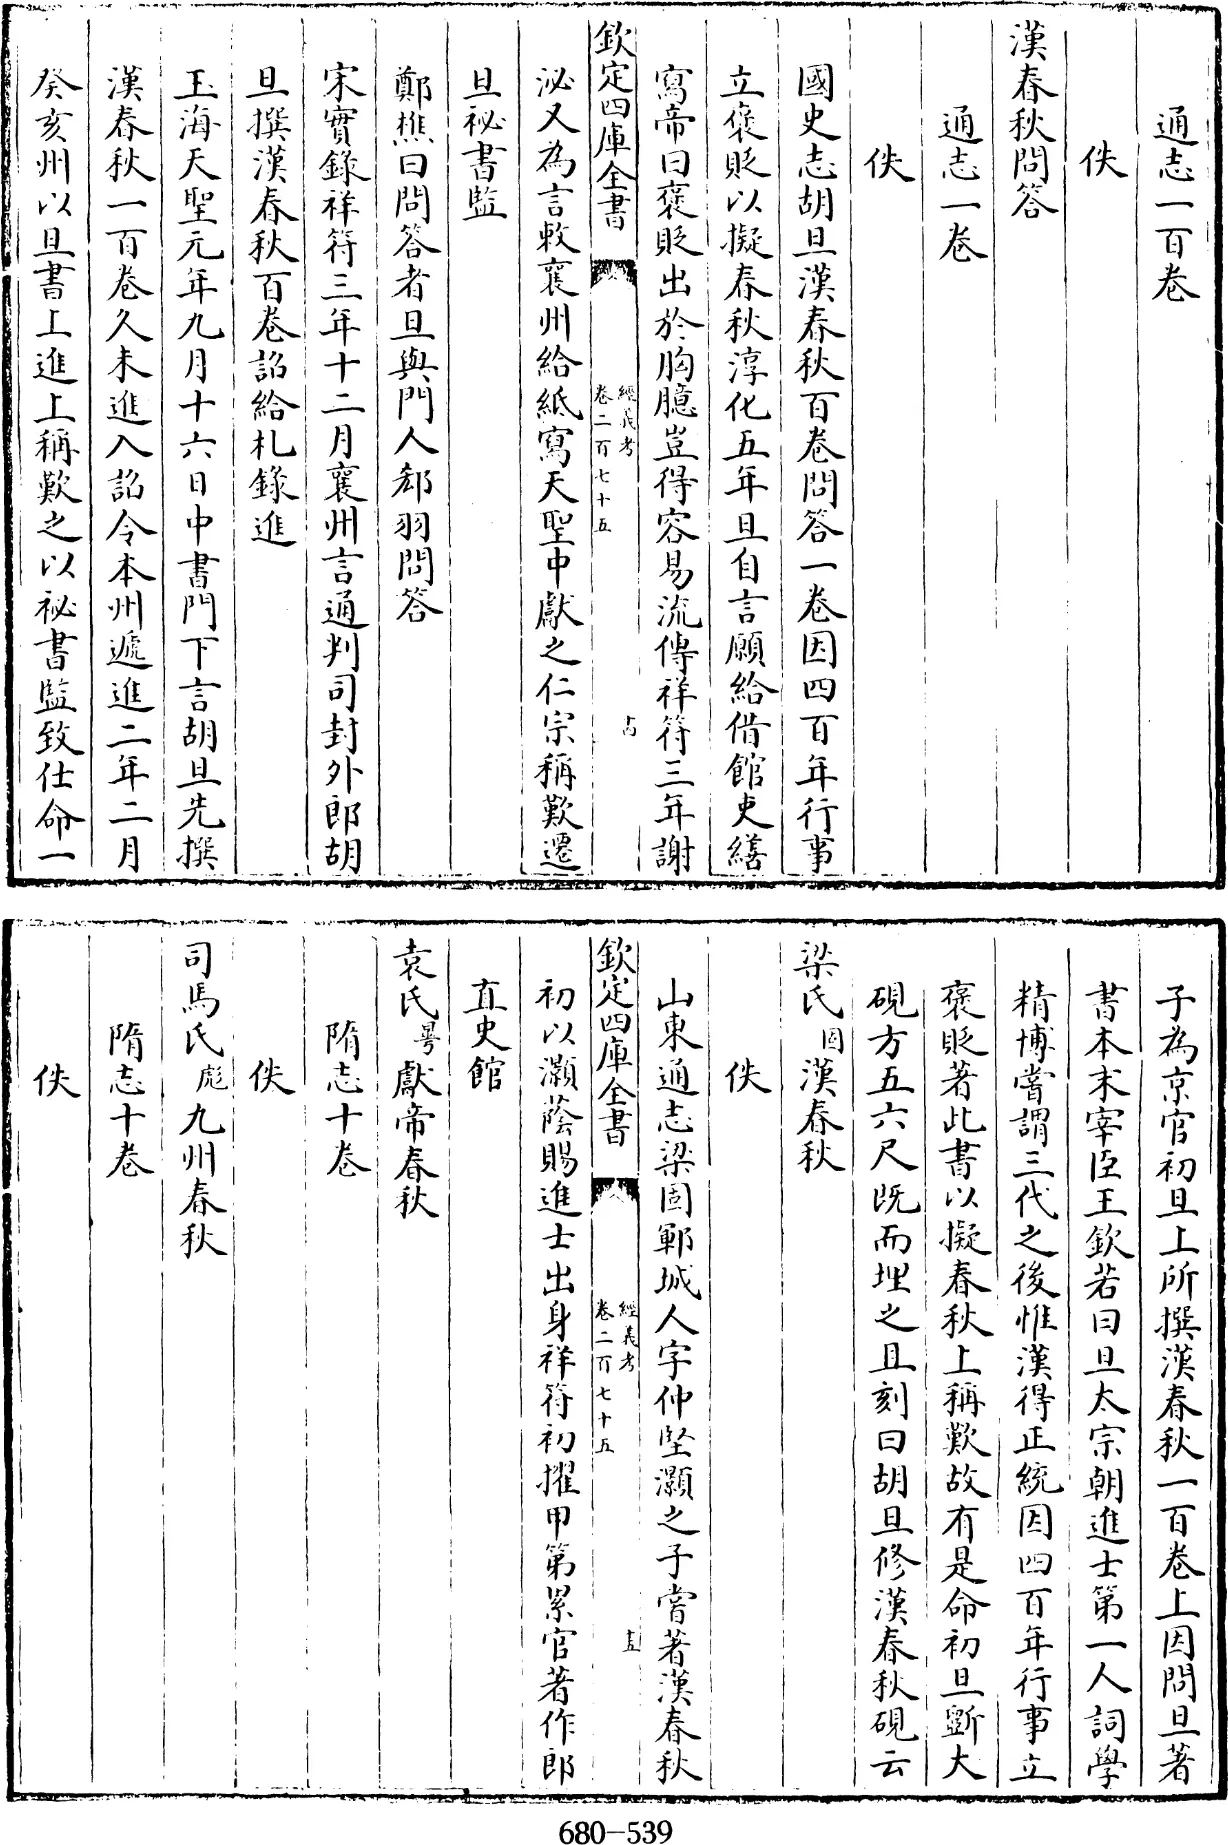 通志一百卷
佚
漢春秋問答
通志一卷
佚
國史志胡旦漢春秋百卷問答一卷因四百年行事
立襃貶以擬春秋淳化五年旦自言願給借館吏繕
寫帝曰襃貶出於胸臆豈得容易流傳祥符三年謝
欽定四庫全書
經義考
卷二百七十五
十四
泌又為言敕襄州給紙寫天聖中獻之仁宗稱歎遷
旦祕書監
鄭樵曰問答者旦與門人郗羽問答
宋實錄祥符三年十二月襄州言通判司封外郎胡
旦撰漢春秋百卷詔給札錄進
玉海天聖元年九月十六日中書門下言胡旦先撰
漢春秋一百卷久未進入詔令本州遞進二年二月
癸亥州以旦書上進上稱歎之以祕書監致仕命一
子為京官初旦上所撰漢春秋一百卷上因問旦著
書本末宰臣王欽若曰旦太宗朝進士第一人詞學
精博嘗謂三代之後惟漢得正統因四百年行事立
襃貶著此書以擬春秋上稱歎故有是命初旦斲大
硯方五六尺既而埋之且刻曰胡旦修漢春秋硯云
梁氏固漢春秋
佚
山東通志梁固鄆城人字仲堅灝之子嘗著漢春秋
欽定四庫全書
經義考
卷二百七十五
十五
初以灝蔭賜進士出身祥符初擢甲第累官著作郎
直史館
袁氏曄獻帝春秋
隋志十卷
佚
司馬氏彪九州春秋
隋志十卷
佚
680-539